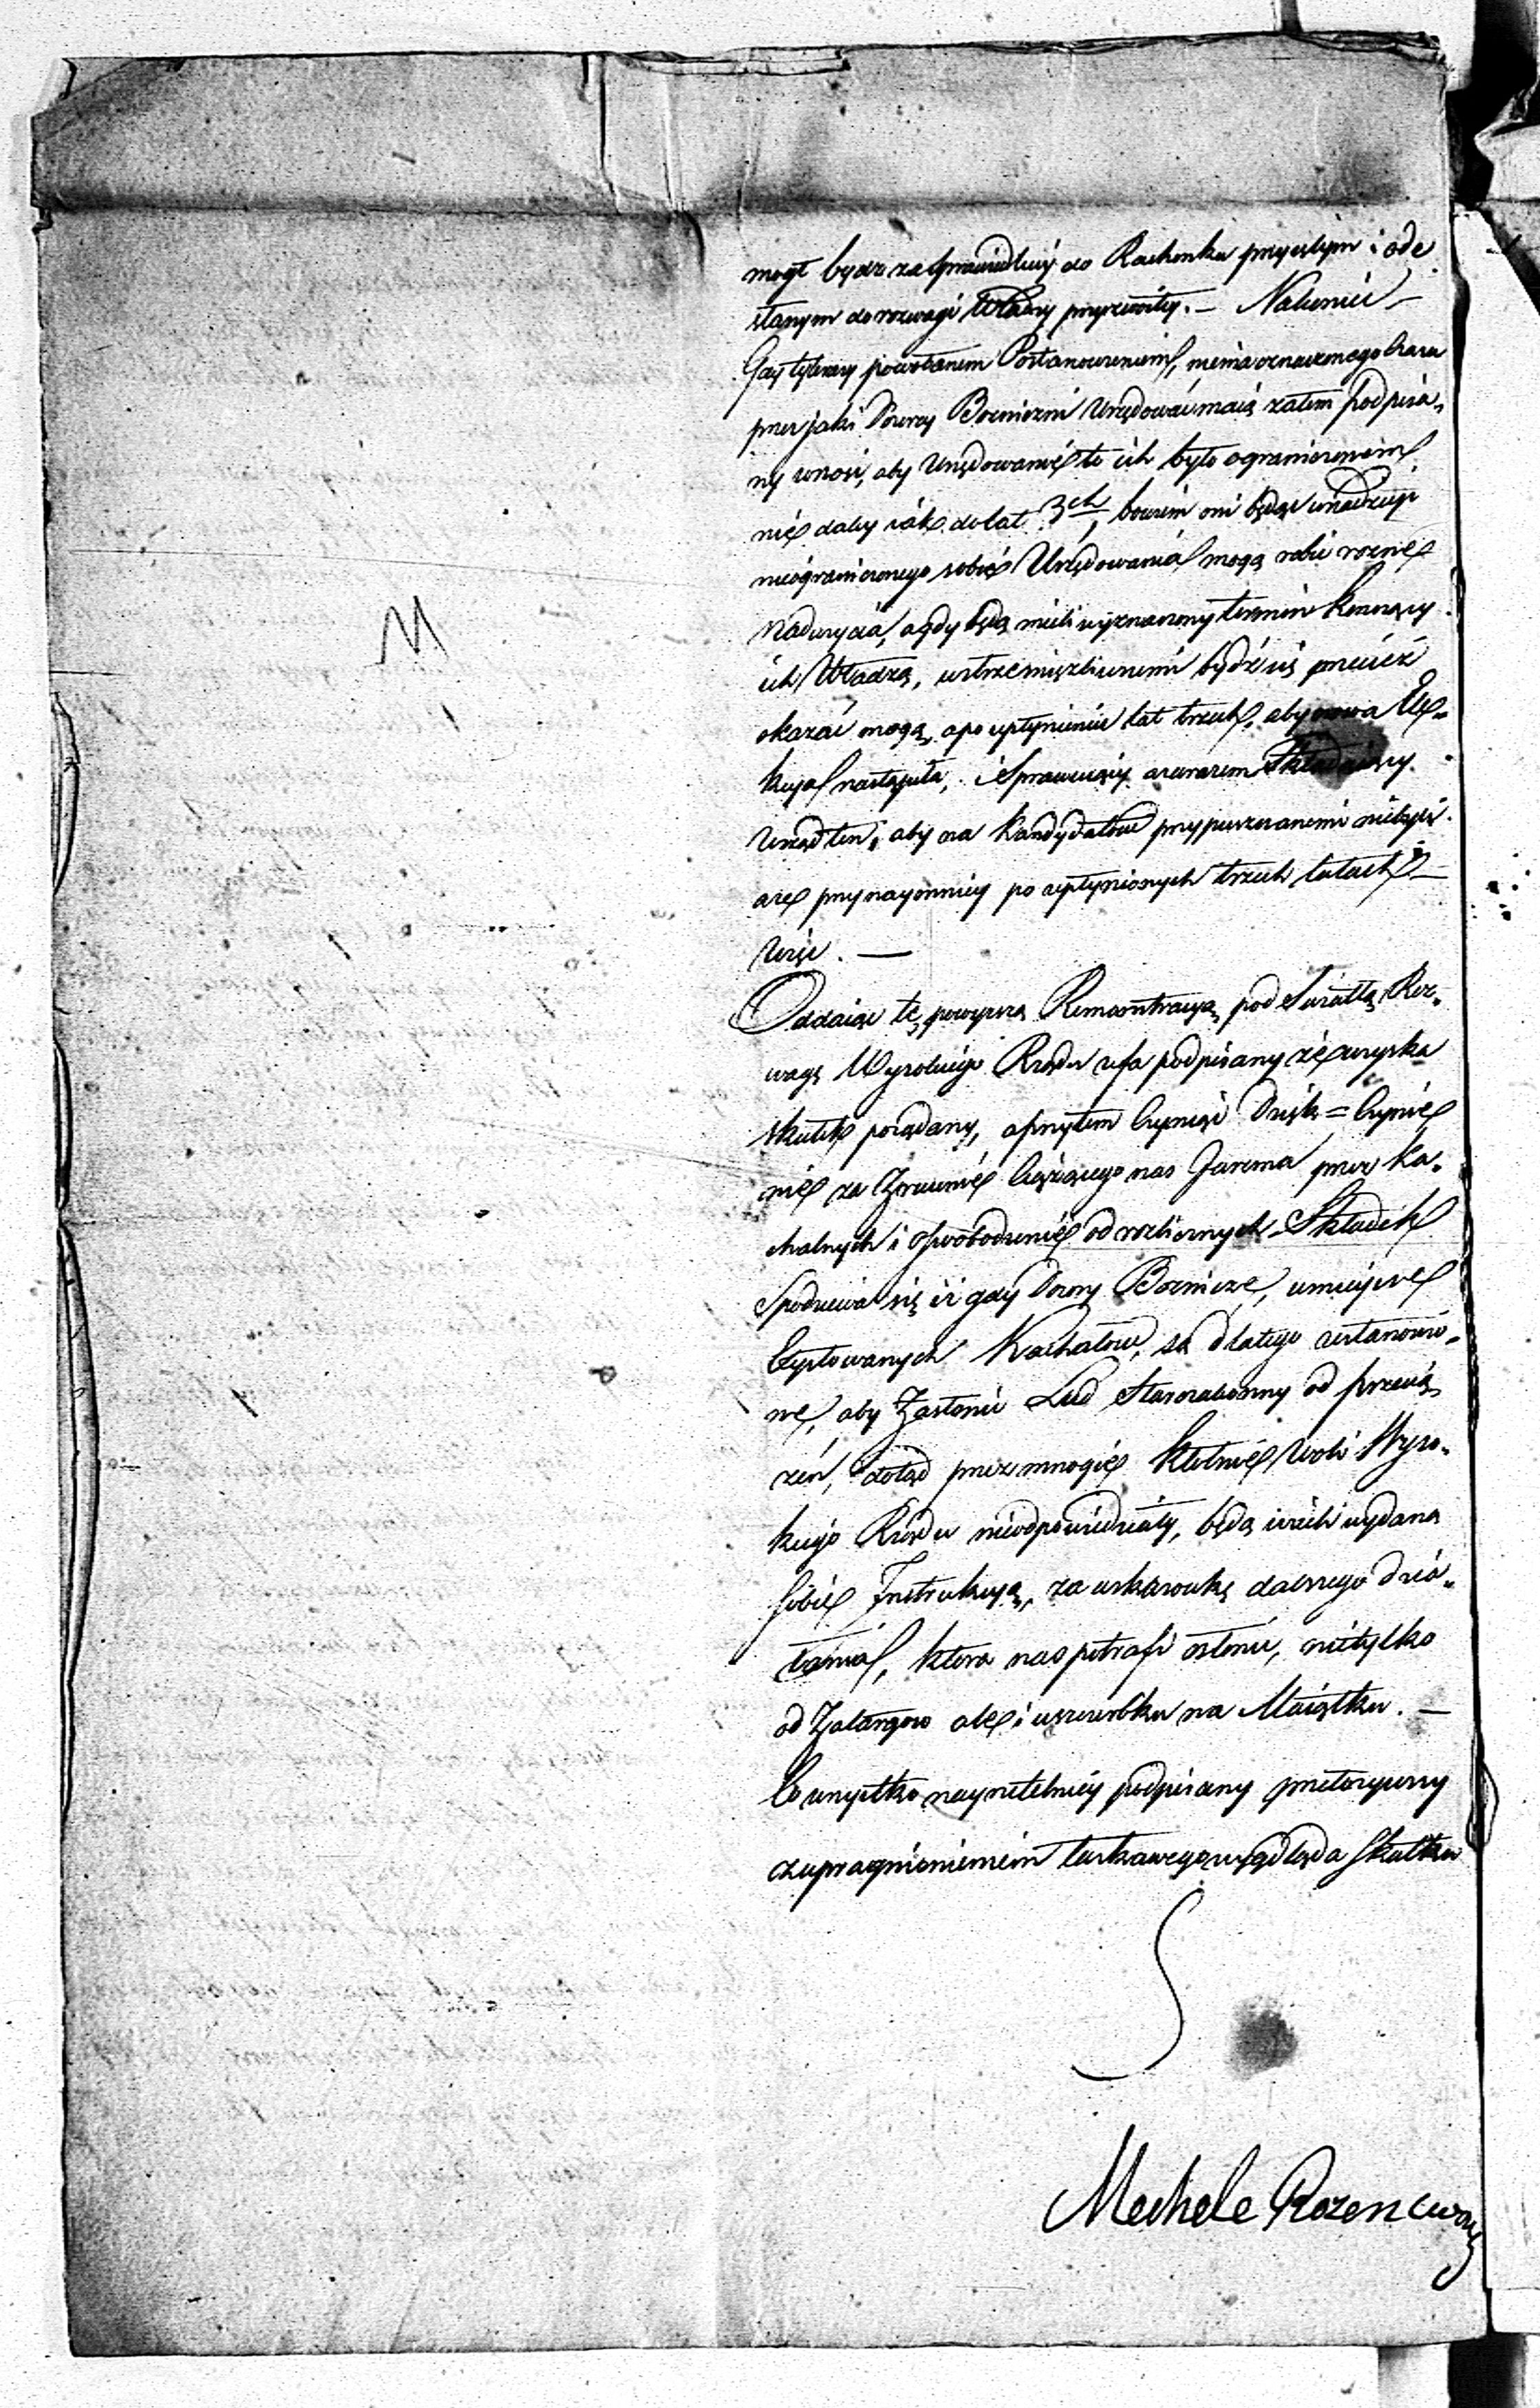 mogł bydz zasprawiedliwy do Rachonku przyiętym i ode
słanym do rozwagi Władzy przyzwoitey. — Nakoniec —
Gdy tylerazy powołanem Postanowieniem, niema oznaczonego Czasu
przez jaki Dozory Bożniczni Urzędować maią zatem podpisa„
ny wnosi, aby Urzędowanie to ich było ograniczonem
nie daley iak do lat 3ch, bowiem oni będąc w nadziei
nieograniczonego sobie Urzędowania mogą robić rozne
Nadurzycia, a gdy będą mieli wyznaczony termin konczący
ich Władzą, wstrzemięzliwemi bydź się przecież
okazać mogą, a po upłynieniu lat trzech, aby nowa Ele„
kcya nastąpiła, i Sprawuiący azarazem Składaiący
Urząd ten, aby na Kandydatow przypuszczanemi niebyli
aże przynaymniey po upłynionych trzech latach —
Wziąć. —
Oddaiąc tę powyższą Remonstracyą, pod Swiatłą Roz„
wagę Wysokiego Rządu ufa podpisany że uzyska
skutek pożądany, a przytem Czyniąc Dzięk = Czynie
nie za Zrzucenie Ciążącego nas Jarzma przez Ka„
chalnych i Oswobodzenie od rozlicznych Składek
Spodziewa się iż gdy Dozory Boznicze, w mieysce
Exystowanych Kachałow, są dlatego ustanowio„
ne, aby Zasłonić Lud Starozakonny od przecią
żeń, dotąd przez mnogie kłotnie Woli Wyso„
kiego Rządu nieodpowiedziały, będą wzieli wydaną
sobie Instrukcyą, za wskazowkę dalszego dzia„
łania, ktora nas potrafi osłonić, nietylko
od Zatargow ale i uszczerbku na Maiątku. —
Co wszytko nayrzetelniey podpisany przełożywszy
z upragnieniem łaskawego wygląda Skutku
Mechele Rozencwayg
M